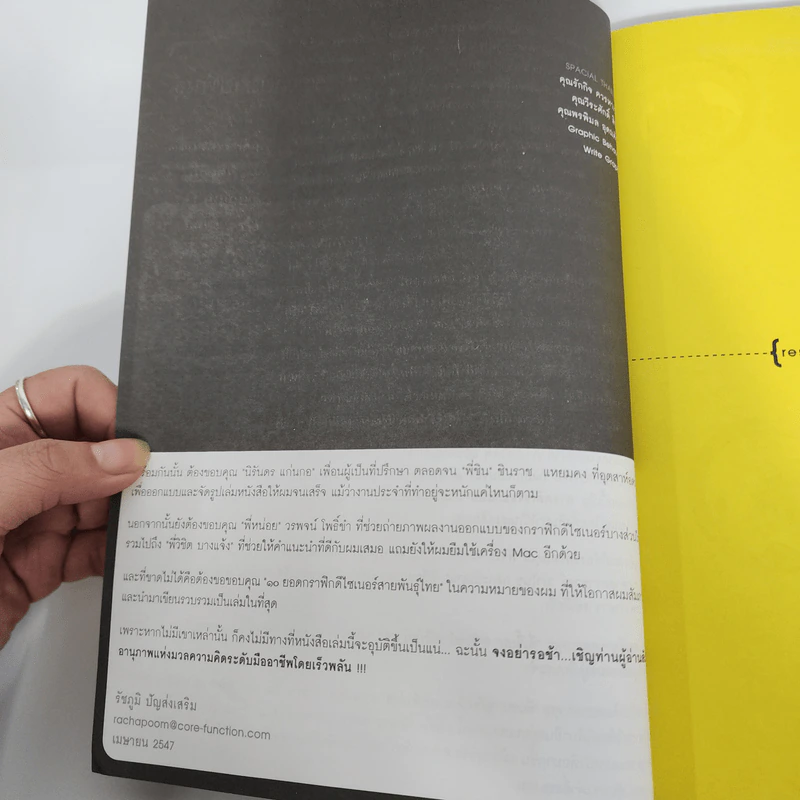 SPACIAL
คุณรักกิจ
คุณวีระศักดิ์
คุณพรพิมล
Graphic
Write
ต้องขอบคุณ "นิรันดร แก่นกอ" เพื่อนผู้เป็นที่ปรึกษา ตลอดจน "พี่ชิน" ชินราช แหยมคง
เพื่อออกแบบและจัดรูปเล่มหนังสือให้ผมจนเสร็จ แม้ว่างานประจำที่ทำอยู่จะหนักแค่ไหนก็ตาม
นอกจากนั้นยังต้องขอบคุณ "พี่หน่อย" วรพจน์ โพธิ์ขำ ที่ช่วยถ่ายภาพผลงานออกแบบของกราฟิกดีไซเนอร์บางส่วน
รวมไปถึง "พี่วิชิต บางแจ้ง" ที่ช่วยให้คำแนะนำที่ดีกับผมเสมอ แถมยังให้ผมยืมใช้เครื่อง Mac อีกด้วย
และที่ขาดไม่ได้คือต้องขอขอบคุณ "๑๐ ยอดกราฟิกดีไซเนอร์สายพันธุ์ไทย" ในความหมายของผม ที่ให้โอกาสผม
และนำมาเขียนรวบรวมเป็นเล่มในที่สุด
เพราะหากไม่มีเขาเหล่านั้น ก็คงไม่มีทางที่หนังสือเล่มนี้จะอุบัติขึ้นเป็นแน่... ฉะนั้น จงอย่ารอช้า...เชิญท่านผู้อ่าน
อานุภาพแห่งมวลความคิดระดับมืออาชีพโดยเร็วพลัน !!!
รัชภูมิ ปัญส่งเสริม
rachapoom@core-function.com
เมษายน 2547